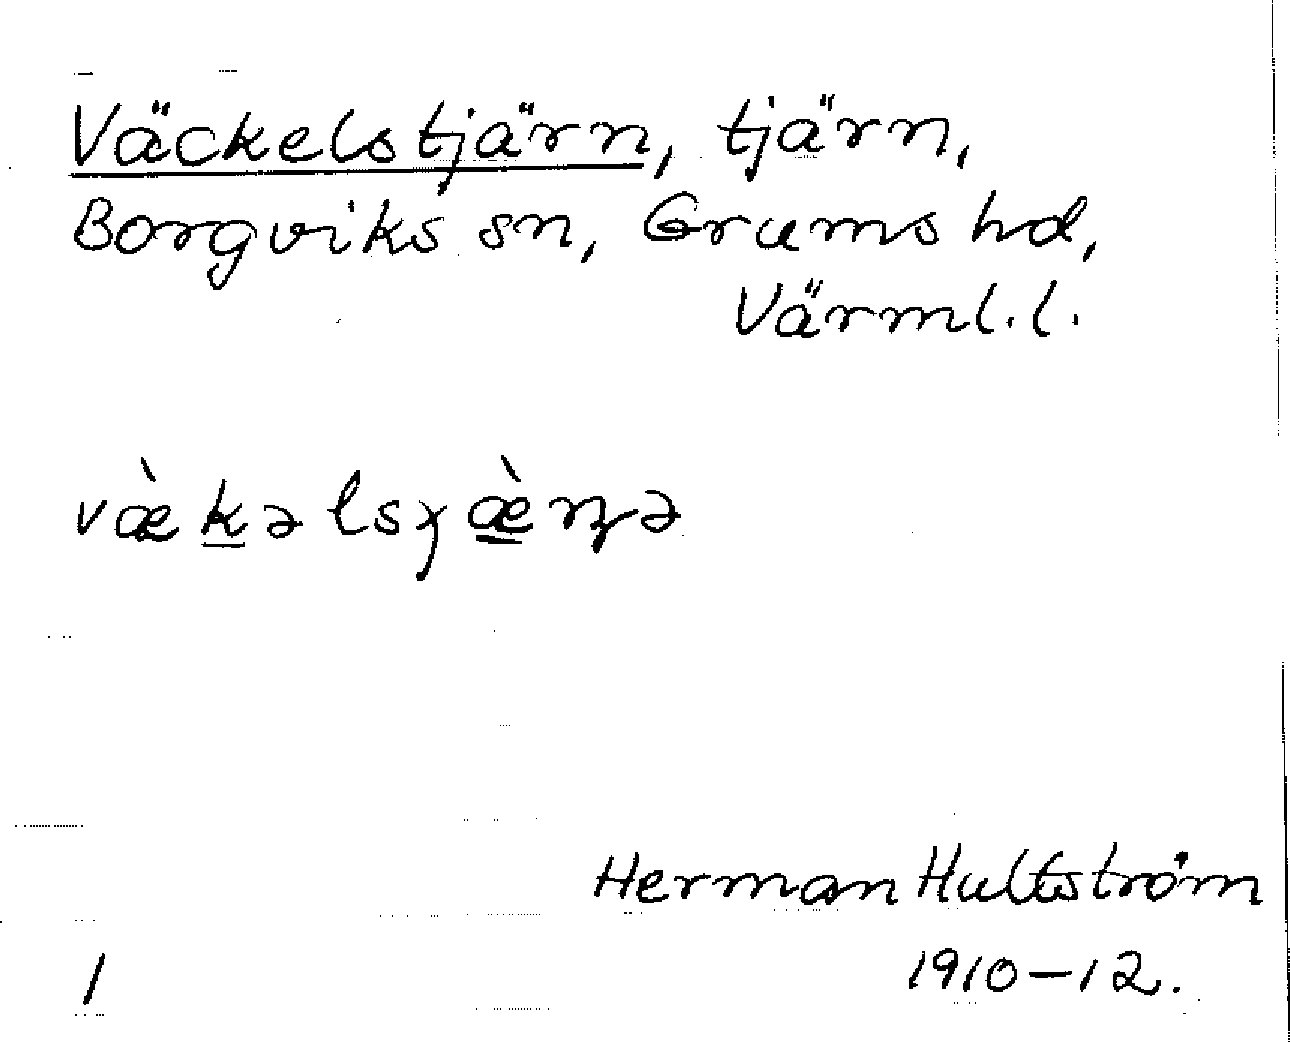 Väckelstjärn, tjärn,
Borgviks sn, Grums hd,
Värml. l.
væ̀kəlsɟæ̀ɳə
Herman Hultström
1 1910–12.